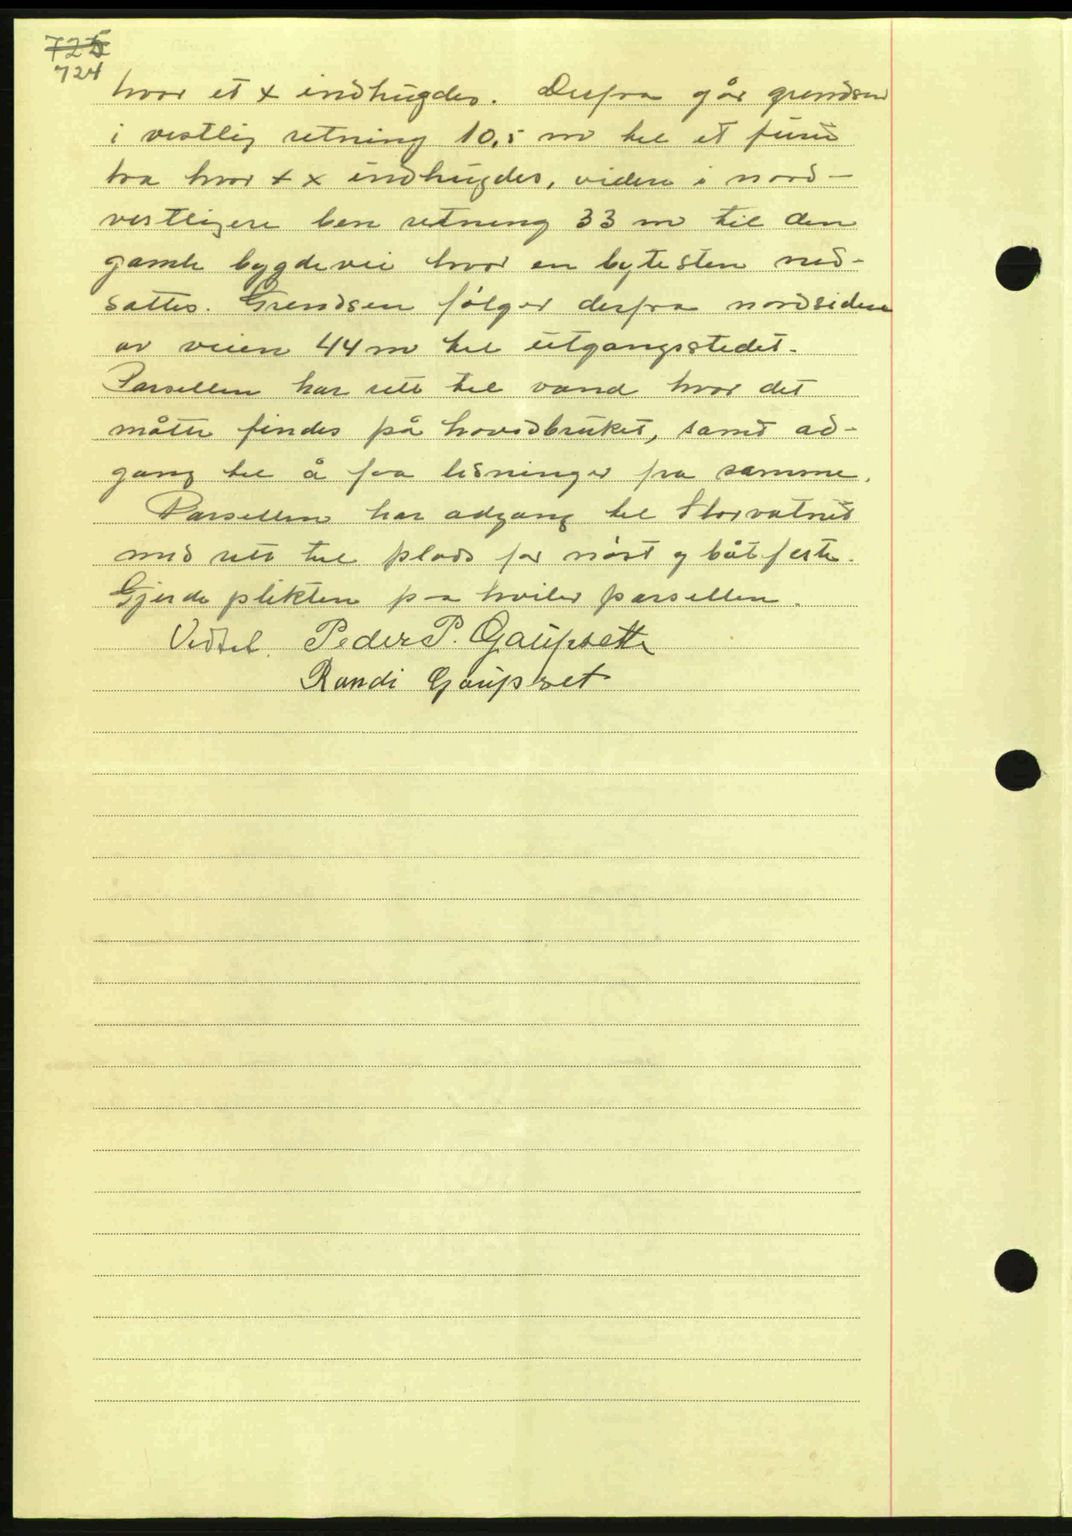 725
724
hvor et x indhugdes. Derfra går grendsen
i vestlig retning 10,5 m til et furu
tra hvor + x indhugdes, videre i nord-
vestligere ben retning 33 m til den
gamle bygdevei hvor en bytesten ned-
sattes. Grendsen følger derfra nordsiden
av veien 44 m til utgangsstedet.
Parsellen har rett til vand hvor det
måtte findes på hovedbruket, samt ad-
gang til å faa ledninger fra samme.
Parsellen har adgang til Storvatnet
med rett til plads for nöst og båtfeste.
Gjerdeplikten paa hviler parsellen.
Vedtel. Peder P. Gaupsett
Randi Gaupset